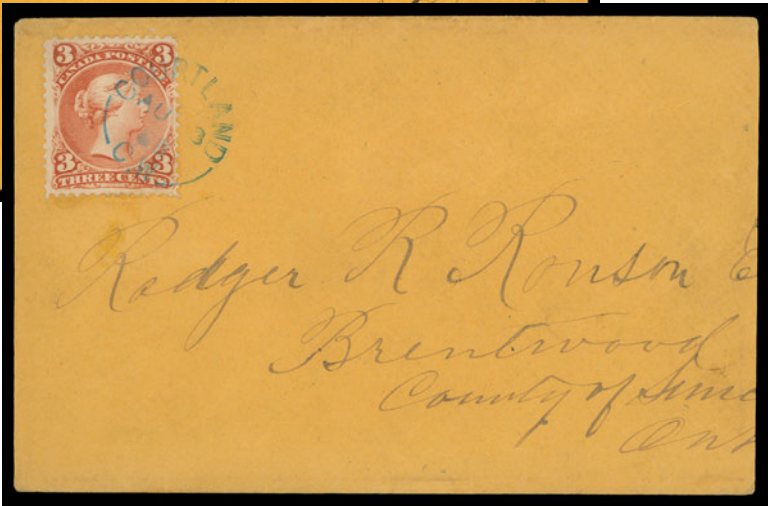 3 3
CANADA POSTAGE
3 3
THREE CENTS
COURTLAND
AU 3
ONT
Rodger R Ronson E
Brentwood
County of Simc
Ont